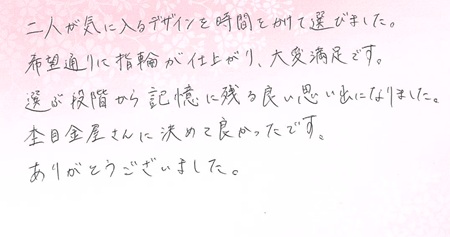 二人が気に入るデザインを時間をかけて選びました。
希望通りに指輪が仕上がり、大変満足です。
選ぶ段階から記憶に残る良い思い出になりました。
杢目金屋さんに決めて良かったです。
ありがとうございました。